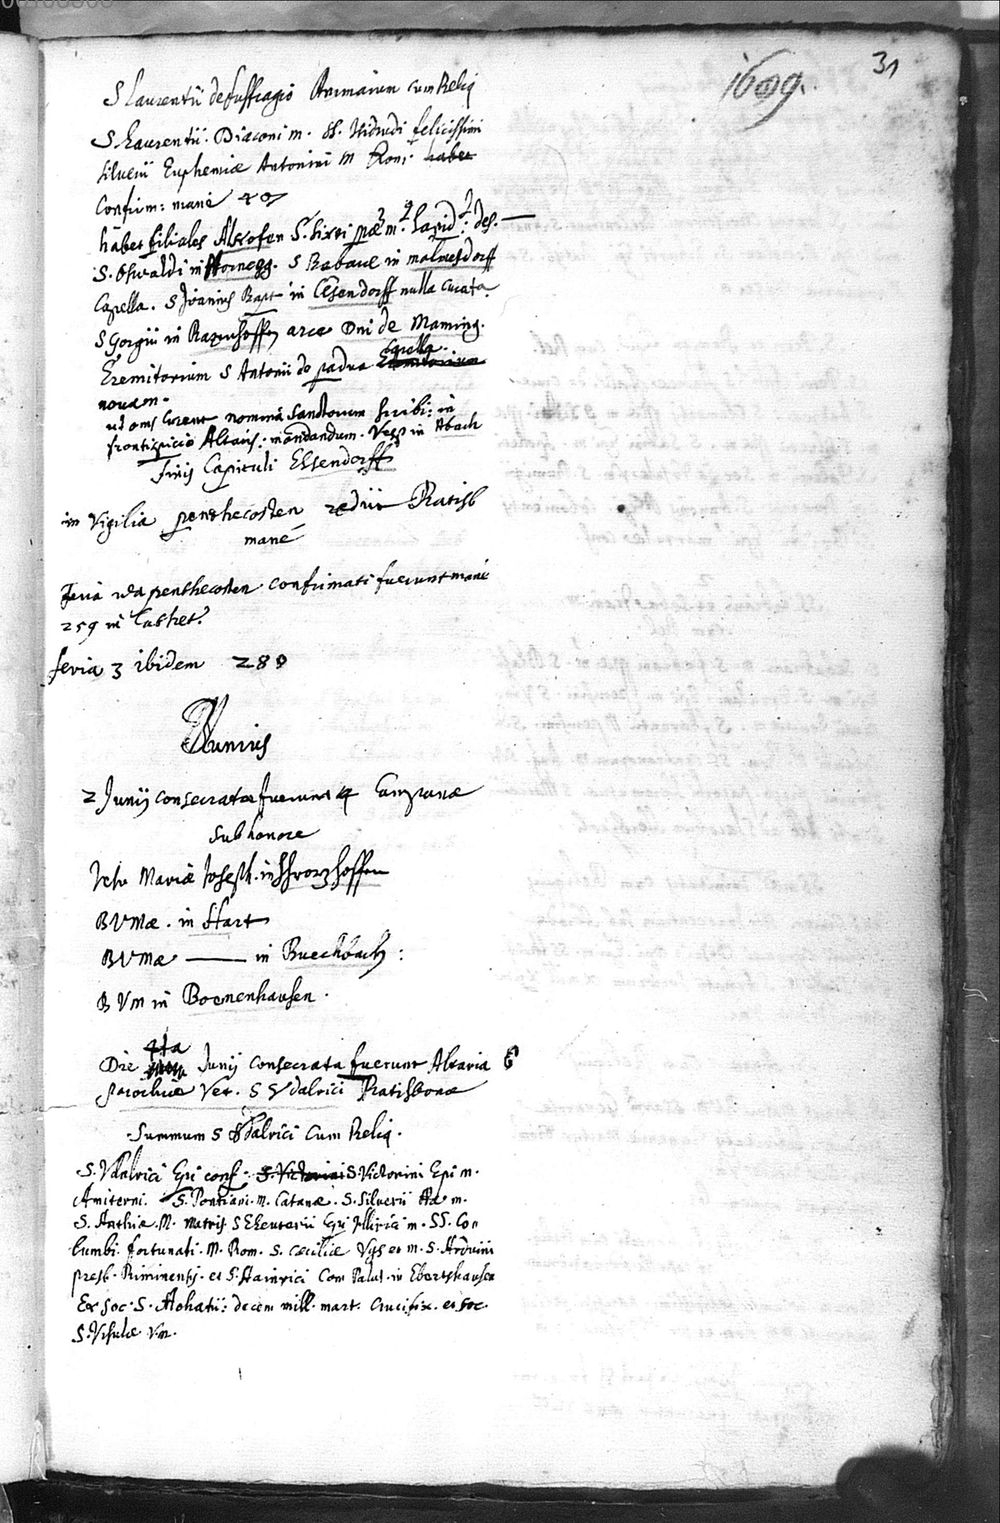 1699.
31
S Laurentii de suffragio Animarum cum Reliq
S. Laurentii. Diaconi m. SS. felicissimi
Silverii Euphemiæ Antonini M Rom: habet
Confirm: mane 40
habet filiales Alkofen S. Sixti ppæ m. Lapid: des.
S. Oswaldi in Hornegg. S Barbaræ in
Capella. S Joannis Bapt in Gsendorff nulla curata
S Gorgii in arce Dni de Maming.
Eremitorium S Antonii de padua Capella
novam.
ut omnes curent nomina Sanctorum scribi: in
frontispicio Altaris: mandandum. in Abach
finis Capituli Essendorff
in Vigilia penthecosten redii Ratisb
mane
feria penthecosten confirmati fuerunt mane
259 in Cathet.
feria 3 ibidem 280
Junius
2 Junij consecratæ fuerunt 4 Campanæ
sub honore
Jesu Mariæ Joseph. in
BVMæ. in Hart
BVMæ — in Buechbach:
BVM in Boenenhausen.
Die 4ta Junij consecrata fuerunt Altaria 6
parochiæ Vet. S Vdalrici Ratisbonæ
Summum S Vdalrici cum Reliq.
S. Vdalrici Epi conf: S. Victorini S. Victorini Epi m.
Amiterni. S. Pontiani. m. Catanæ. S. Silverii m.
S. Anthiæ. M. matris S Eleuterii Epi Illirici m. SS. Co=
lumbi. fortunati. M. Rom. S. Cæciliæ Vgs et m. S. Arduini
presb. Riminensis. et S. Hainrici Com Palat. in Ebertshausen
Ex soc. S. Achatii: decem mill. mart. Crucifix. et soc.
S. Vrsulæ V.m.